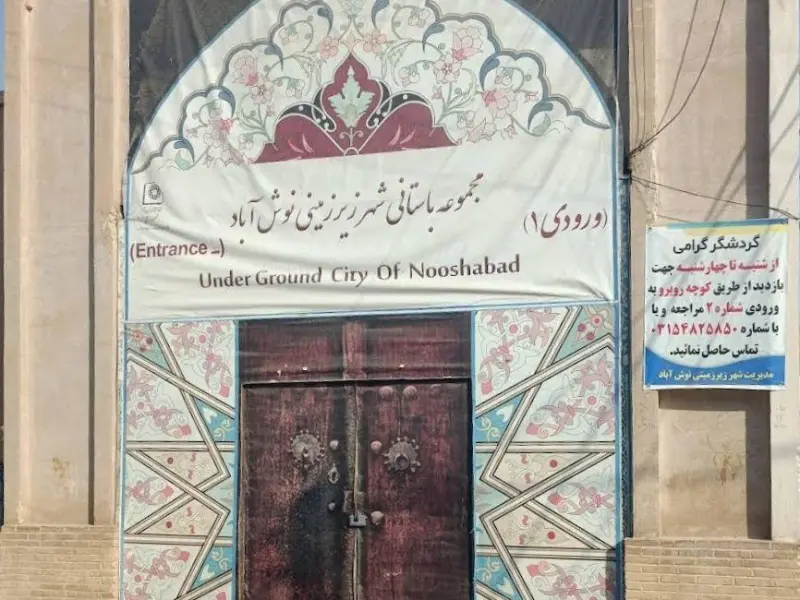 مجموعه باستانی شهر زیرزمینی نوش آباد
(ورودی ۱)
(Entrance -)
Under Ground City Of Nooshabad
گردشگر گرامی
از شنبه تا چهارشنبه جهت
بازدید از طریق کوچه روبرو به
ورودی شماره ۲ مراجعه و یا
با شماره ۰۳۱۵۴۸۲۵۸۵۰
تماس حاصل نمائید.
مدیریت شهر زیرزمینی نوش آباد